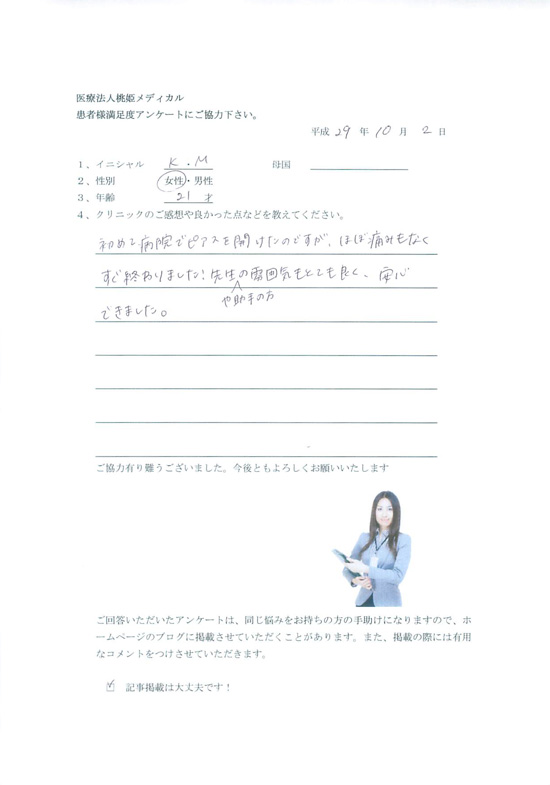 医療法人桃姫メディカル
患者様満足度アンケートにご協力下さい。
平成 29 年 10 月 2 日
1、イニシャル K．M 母国
2、性別 女性・男性
3、年齢 21 才
4、クリニックのご感想や良かった点などを教えてください。
初めて病院でピアスを開けたのですが、ほぼ痛みもなく
すぐ終わりました！先生の雰囲気もとても良く、安心
や助手の方
できました。
ご協力有り難うございました。今後ともよろしくお願いいたします
ご回答いただいたアンケートは、同じ悩みをお持ちの方の手助けになりますので、ホ
ームページのブログに掲載させていただくことがあります。また、掲載の際には有用
なコメントをつけさせていただきます。
☑ 記事掲載は大丈夫です！